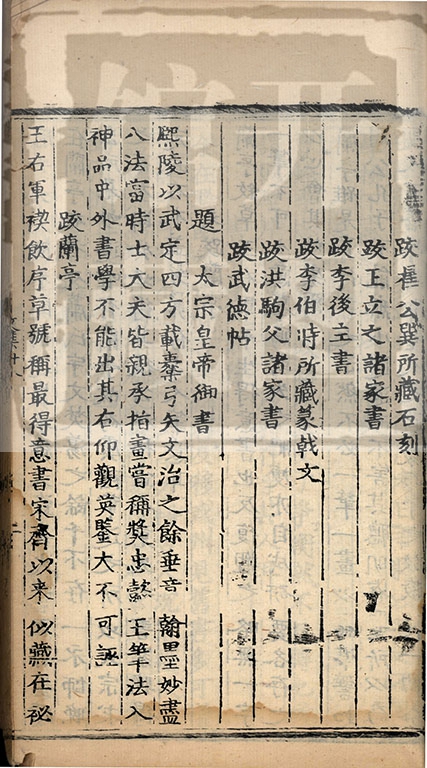 跋崔公巽所藏石刻
跋王立之諸家書
跋李後主書
跋李伯時所藏篆戟文
跋洪駒父諸家書
跋武德帖
題太宗皇帝御書
熙陵以武定四方載櫜弓矢文治之餘垂音翰墨妙盡
八法當時士大夫皆親承指畫嘗稱獎忠懿王筆法入
神品中外書學不能出其右仰觀英鑒大不可誣
跋蘭亭
王右軍禊飲序草號稱最得意書宋齊以来似藏在祕